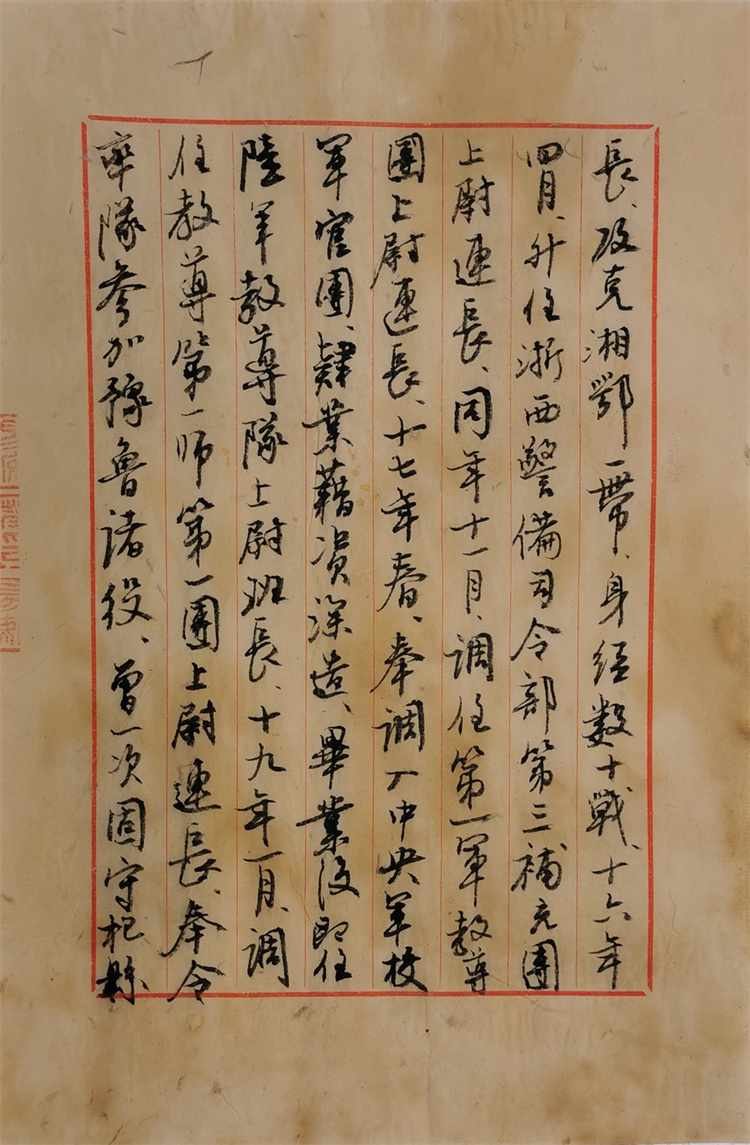 長、攻克湘鄂一帶、身經数十戰、十六年
四月、升任浙西警備司令部第三補充團
上尉連長、同年十一月、調任第一軍教導
團上尉連長、十七年春、奉調入中央軍校
軍官團、肄業藉資深造、畢業後即任
陸軍教導隊上尉班長、十九年一月、調
任教導第一師第一團上尉連長、奉令
率隊參加豫魯諸役、曾一次固守杞縣